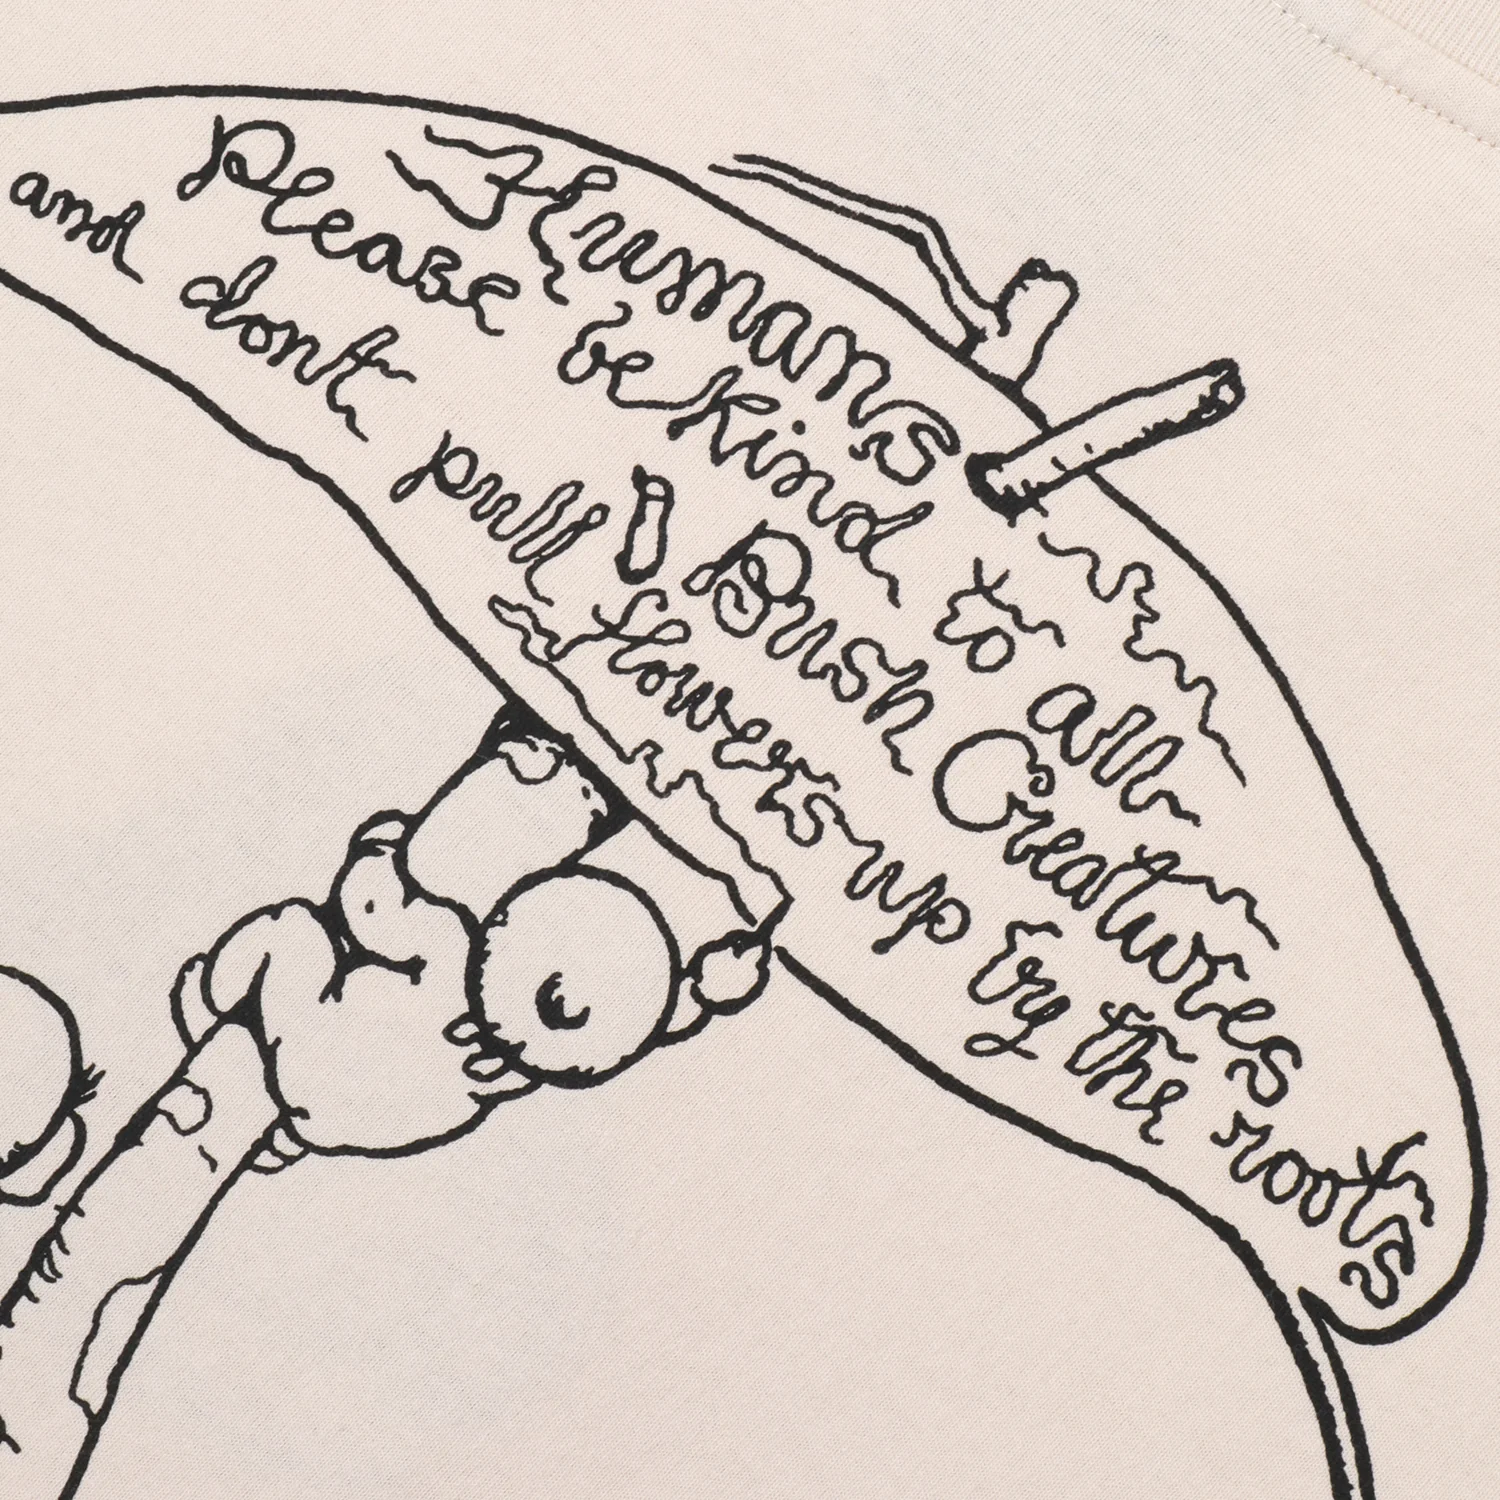 Humans
Please be kind to all
and dont pull Bush Creatures
flowers up by the roots